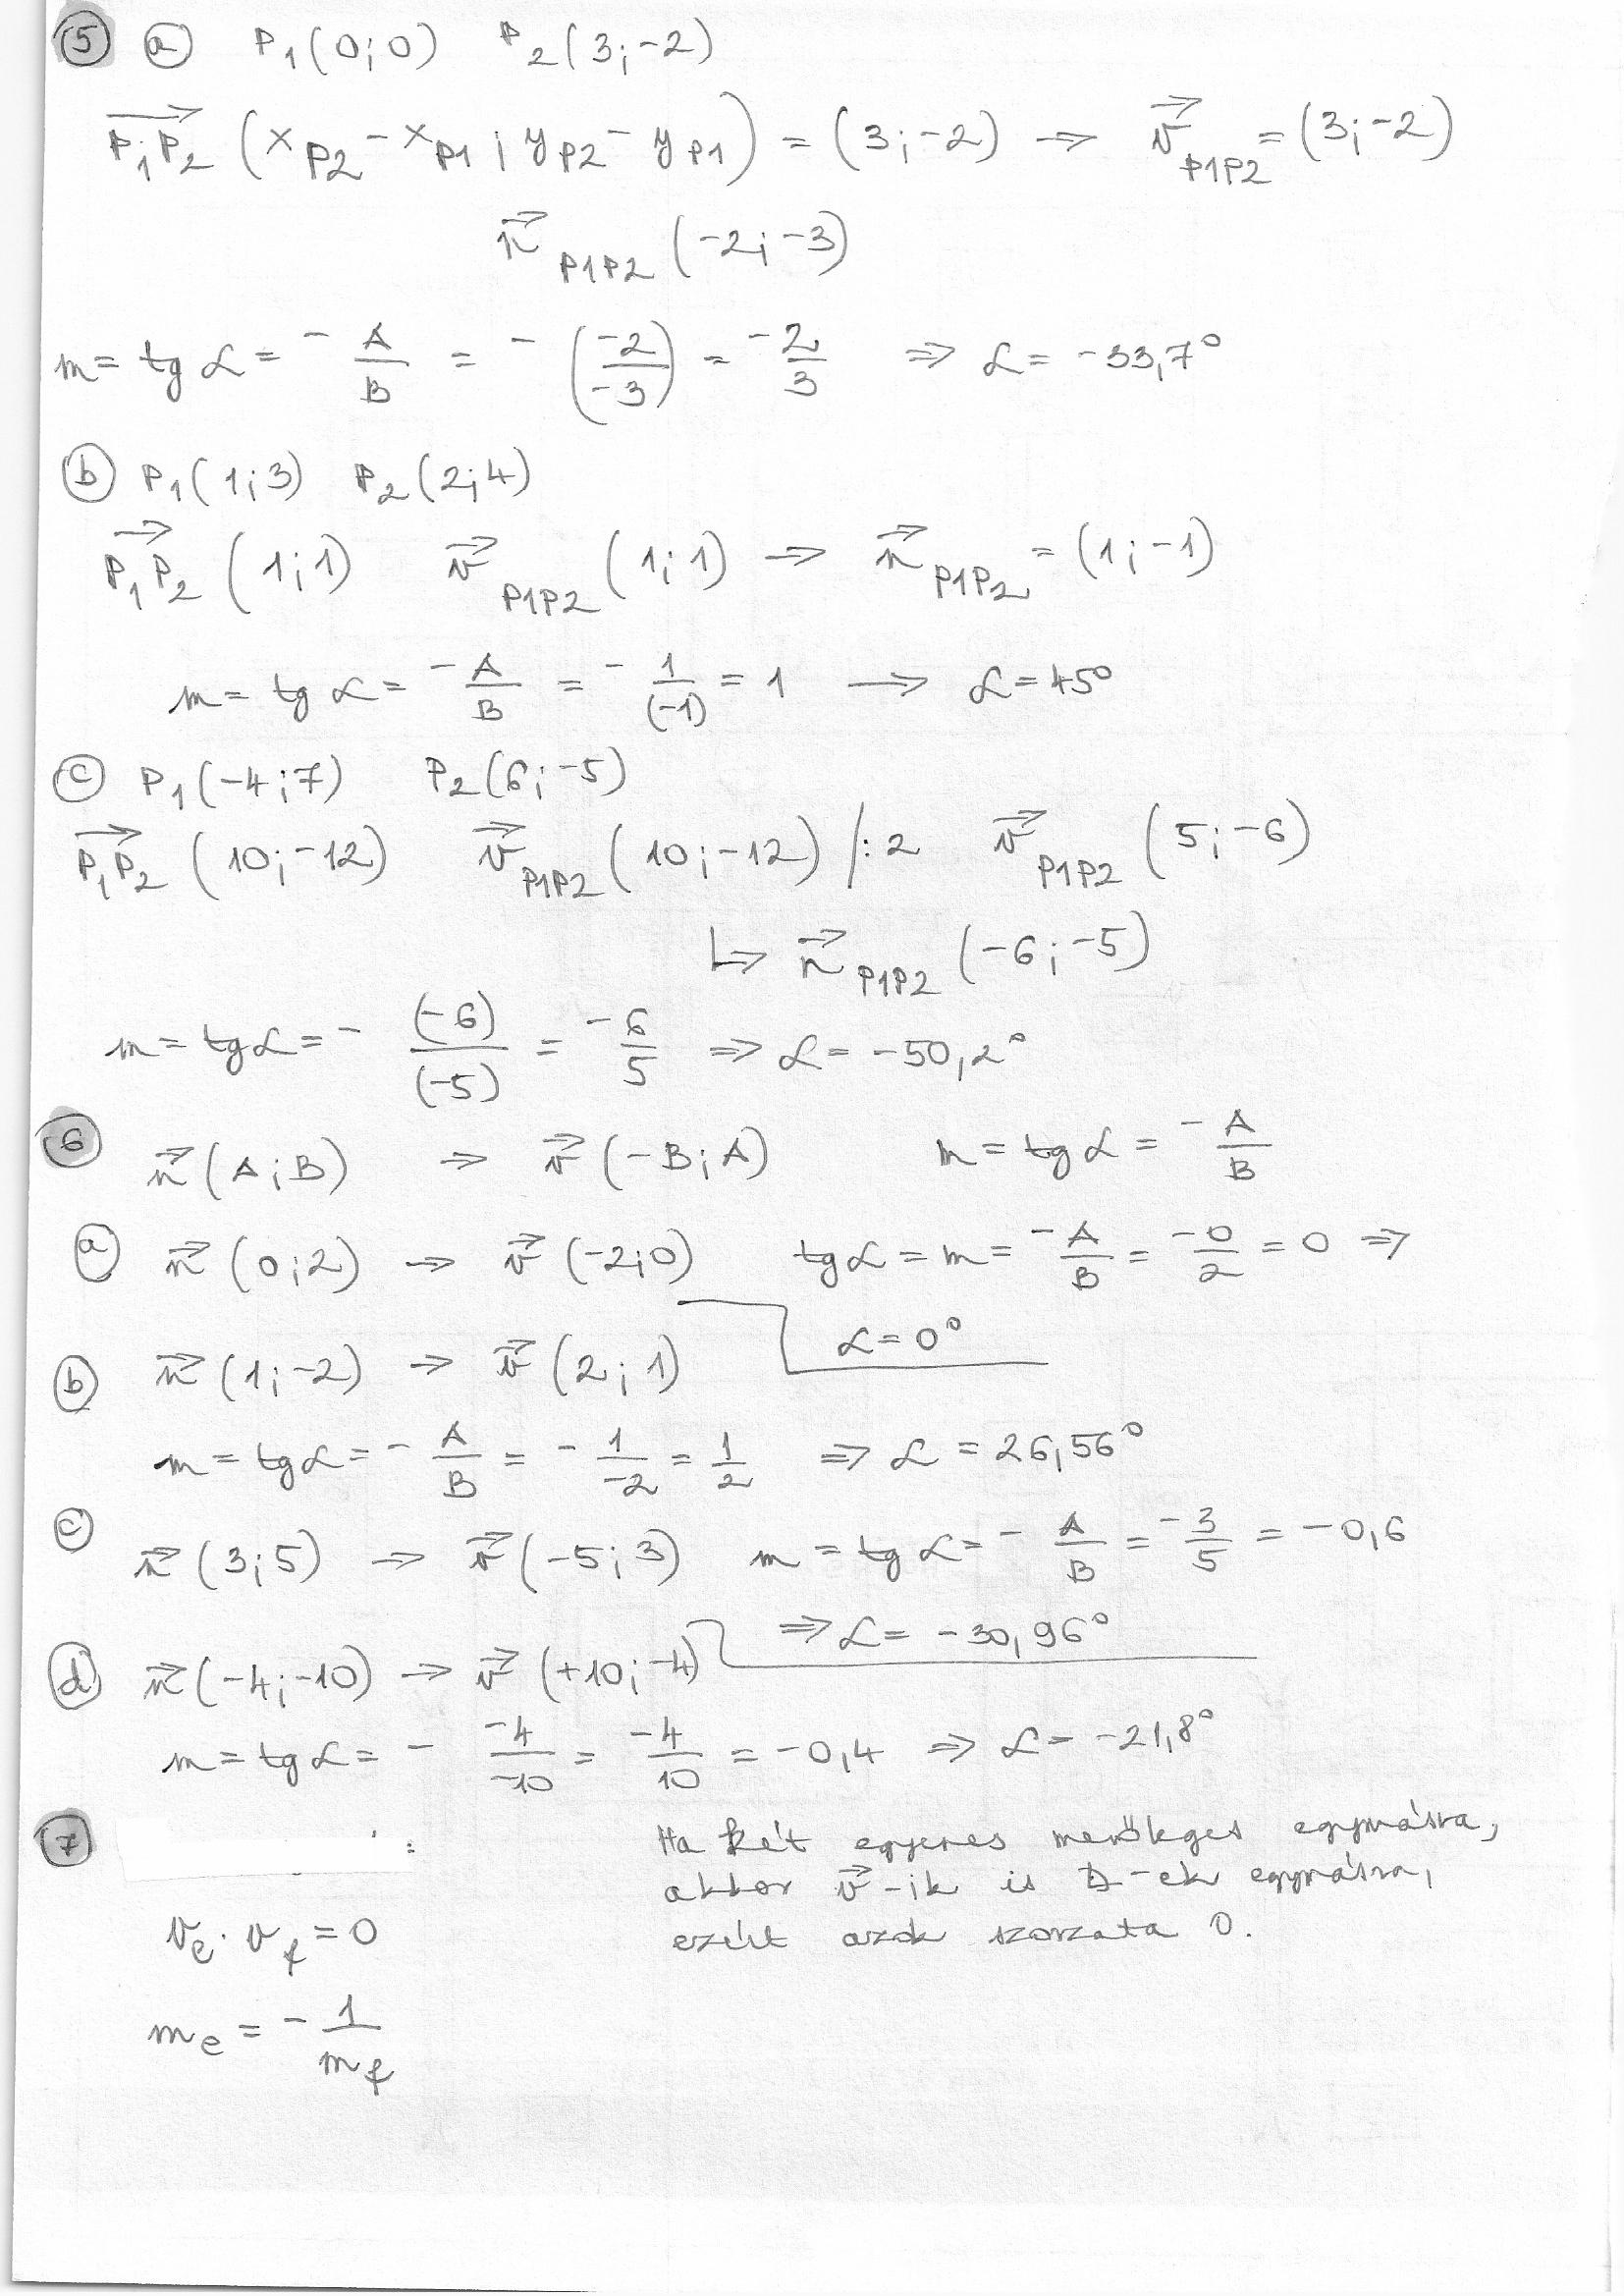 5 a P₁(0;0) P₂(3;-2)
P₁P₂ (x_P2 - x_P1 ; y_P2 - y_P1) = (3;-2) → v_P1P2 = (3;-2)
n_P1P2 (-2;-3)
m = tg α = - A/B = - (-2/-3) = -2/3 ⇒ α = -33,7°
b P₁(1;3) P₂(2;4)
P₁P₂ (1;1) v_P1P2 (1;1) → n_P1P2 = (1;-1)
m = tg α = -A/B = - 1/(-1) = 1 → α = 45°
c P₁(-4;7) P₂(6;-5)
P₁P₂ (10;-12) v_P1P2 (10;-12) /:2 v_P1P2 (5;-6)
↳ n_P1P2 (-6;-5)
m = tg α = - (-6)/(-5) = -6/5 ⇒ α = -50,2°
6 n(A;B) → v(-B;A) m = tg α = -A/B
a n(0;2) → v(-2;0) tg α = m = -A/B = -0/2 = 0 ⇒
α = 0°
b n(1;-2) → v(2;1)
m = tg α = - A/B = - 1/-2 = 1/2 ⇒ α = 26,56°
c n(3;5) → v(-5;3) m = tg α = - A/B = -3/5 = -0,6
⇒ α = -30,96°
d n(-4;-10) → v(+10;-4)
m = tg α = - -4/-10 = -4/10 = -0,4 ⇒ α = -21,8°
7 : Ha két egyenes merőleges egymásra,
akkor v-ik is ⊥-ek egymásra,
ezért azok szorzata 0.
v_e · v_f = 0
m_e = - 1/m_f